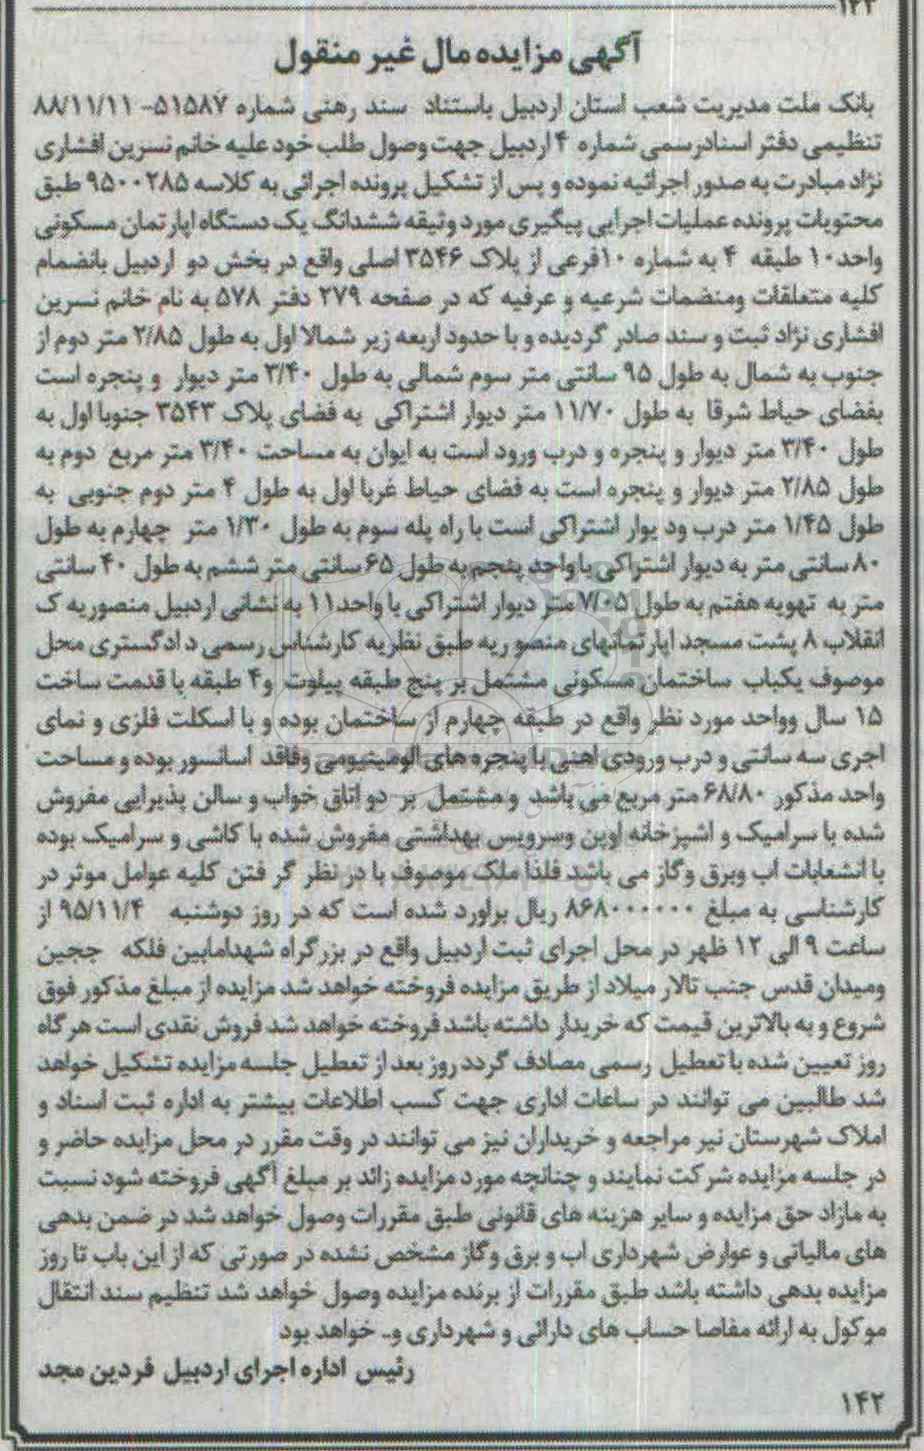 ۱۲۳
آگهی مزایده مال غیر منقول
بانک ملت مدیریت شعب استان اردبیل باستناد سند رهنی شماره ۵۱۵۸۷- ۸۸/۱۱/۱۱
تنظیمی دفتر اسنادرسمی شماره ۴ اردبیل جهت وصول طلب خود علیه خانم نسرین افشاری
نژاد مبادرت به صدور اجرائیه نموده و پس از تشکیل پرونده اجرائی به کلاسه ۹۵۰۰۲۸۵ طبق
محتویات پرونده عملیات اجرایی پیگیری مورد وثیقه ششدانگ یک دستگاه اپارتمان مسکونی
واحد۱۰ طبقه ۴ به شماره ۱۰فرعی از پلاک ۳۵۴۶ اصلی واقع در بخش دو اردبیل بانضمام
کلیه متعلقات ومنضمات شرعیه و عرفیه که در صفحه ۲۷۹ دفتر ۵۷۸ به نام خانم نسرین
افشاری نژاد ثبت و سند صادر گردیده و با حدود اربعه زیر شمالا اول به طول ۲/۸۵ متر دوم از
جنوب به شمال به طول ۹۵ سانتی متر سوم شمالی به طول ۳/۴۰ متر دیوار و پنجره است
بفضای حیاط شرقا به طول ۱۱/۷۰ متر دیوار اشتراکی به فضای پلاک ۳۵۴۳ جنوبا اول به
طول ۳/۴۰ متر دیوار و پنجره و درب ورود است به ایوان به مساحت ۳/۴۰ متر مربع دوم به
طول ۲/۸۵ متر دیوار و پنجره است به فضای حیاط غربا اول به طول ۴ متر دوم جنوبی به
طول ۱/۴۵ متر درب ود یوار اشتراکی است با راه پله سوم به طول ۱/۳۰ متر چهارم به طول
۸۰ سانتی متر به دیوار اشتراکی با واحد پنجم به طول ۶۵ سانتی متر ششم به طول ۴۰ سانتی
متر به تهویه هفتم به طول ۷/۰۵ متر دیوار اشتراکی با واحد۱۱ به نشانی اردبیل منصوریه ک
انقلاب ۸ پشت مسجد اپارتمانهای منصو ریه طبق نظریه کارشناس رسمی دادگستری محل
موصوف یکباب ساختمان مسکونی مشتمل بر پنج طبقه پیلوت و۴ طبقه با قدمت ساخت
۱۵ سال وواحد مورد نظر واقع در طبقه چهارم از ساختمان بوده و با اسکلت فلزی و نمای
اجری سه سانتی و درب ورودی اهنی با پنجره های الومینیومی وفاقد اسانسور بوده و مساحت
واحد مذکور ۶۸/۸۰ متر مربع می باشد و مشتمل بر دو اتاق خواب و سالن پذیرایی مفروش
شده با سرامیک و اشپزخانه اوپن وسرویس بهداشتی مفروش شده با کاشی و سرامیک بوده
با انشعابات اب وبرق وگاز می باشد فلذا ملک موصوف با در نظر گر فتن کلیه عوامل موثر در
کارشناسی به مبلغ ۸۶۸۰۰۰۰۰۰ ریال براورد شده است که در روز دوشنبه ۹۵/۱۱/۴ از
ساعت ۹ الی ۱۲ ظهر در محل اجرای ثبت اردبیل واقع در بزرگراه شهدامابین فلکه ججین
ومیدان قدس جنب تالار میلاد از طریق مزایده فروخته خواهد شد مزایده از مبلغ مذکور فوق
شروع و به بالاترین قیمت که خریدار داشته باشد فروخته خواهد شد فروش نقدی است هرگاه
روز تعیین شده با تعطیل رسمی مصادف گردد روز بعد از تعطیل جلسه مزایده تشکیل خواهد
شد طالبین می توانند در ساعات اداری جهت کسب اطلاعات بیشتر به اداره ثبت اسناد و
املاک شهرستان نیر مراجعه و خریداران نیز می توانند در وقت مقرر در محل مزایده حاضر و
در جلسه مزایده شرکت نمایند و چنانچه مورد مزایده زائد بر مبلغ آگهی فروخته شود نسبت
به مازاد حق مزایده و سایر هزینه های قانونی طبق مقررات وصول خواهد شد در ضمن بدهی
های مالیاتی و عوارض شهرداری اب و برق وگاز مشخص نشده در صورتی که از این باب تا روز
مزایده بدهی داشته باشد طبق مقررات از برنده مزایده وصول خواهد شد تنظیم سند انتقال
موکول به ارائه مفاصا حساب های دارائی و شهرداری و.. خواهد بود
رئیس اداره اجرای اردبیل فردین مجد
۱۴۲